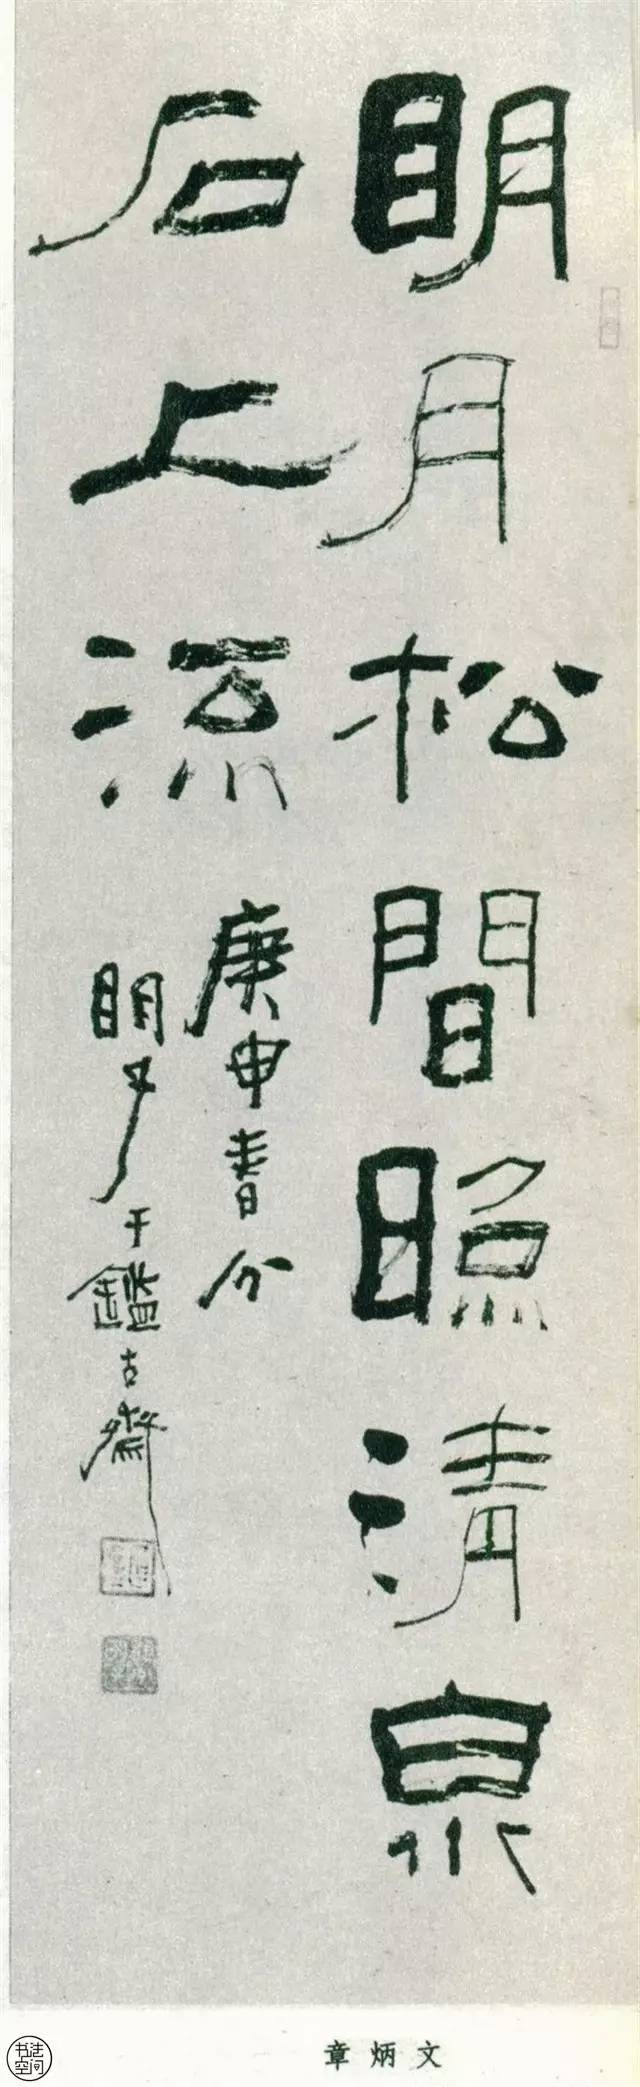 明月松間照清泉
石上流
庚申春分
明 于鑑古齋
章炳文
书法
空间